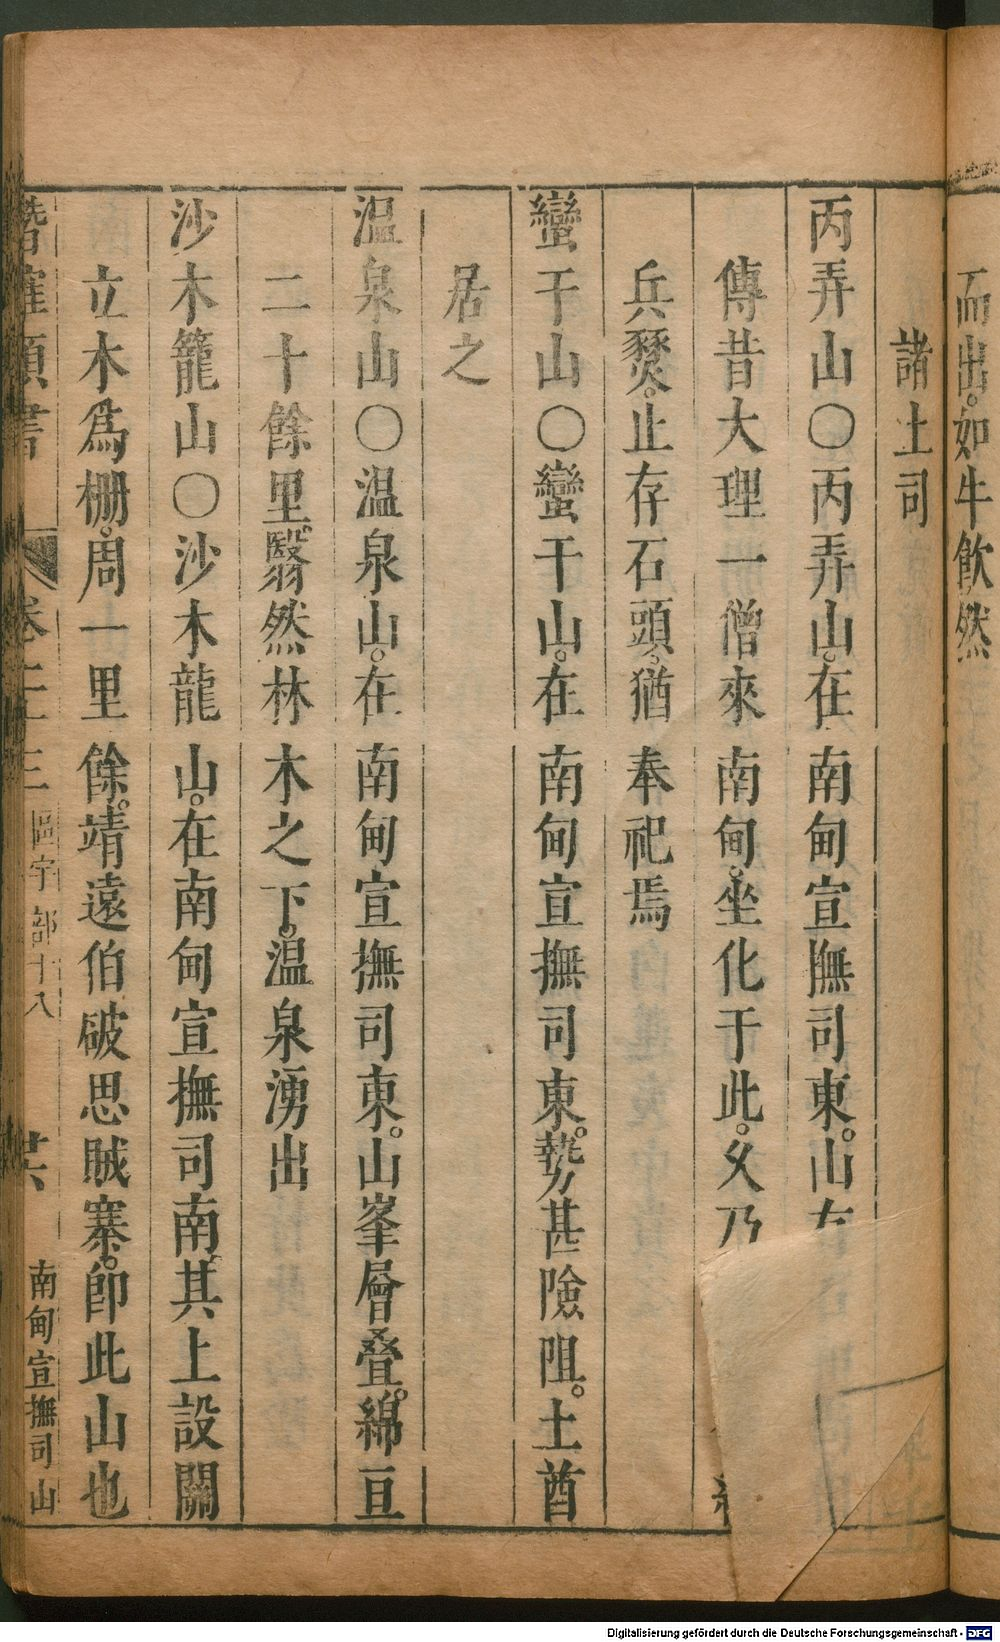 而出如牛飲然
諸土司
丙弄山〇丙弄山在南甸宣撫司東山
傳昔大理一僧來南甸坐化于此父乃
兵燹止存石頭猶奉祀焉
蠻干山〇蠻干山在南甸宣撫司東勢甚險阻土酋
居之
溫泉山〇溫泉山在南甸宣撫司東山峯層疊綿亘
二十餘里翳然林木之下溫泉湧出
沙木籠山〇沙木龍山在南甸宣撫司南其上設關
立木爲柵周一里餘靖遠伯破思賊寨卽此山也
潛確類書 卷十三 區宇部十八 廿六 南甸宣撫司山
Digitalisierung gefördert durch die Deutsche Forschungsgemeinschaft - DFG